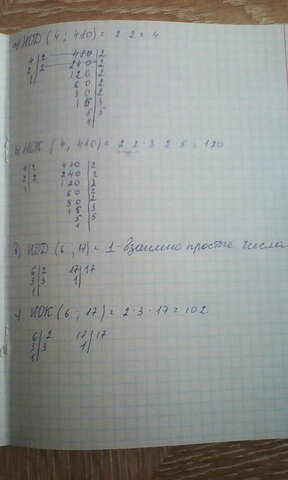 а) НОД (4; 480) = 2 · 2 = 4
4 | 2   480 | 2
2 | 2   240 | 2
1   120 | 2
60 | 2
30 | 2
15 | 3
5 | 5
1
б) НОК (4, 480) = 2 · 2 · 3 · 2 · 5 = 120
4 | 2   480 | 2
2 | 2   240 | 2
1   120 | 2
60 | 2
30 | 2
15 | 3
5 | 5
1
в) НОД (6, 17) = 1 - взаимно простые числа
6 | 2   17 | 17
3 | 3   1
1
г) НОК (6, 17) = 2 · 3 · 17 = 102
6 | 2   17 | 17
3 | 3   1
1